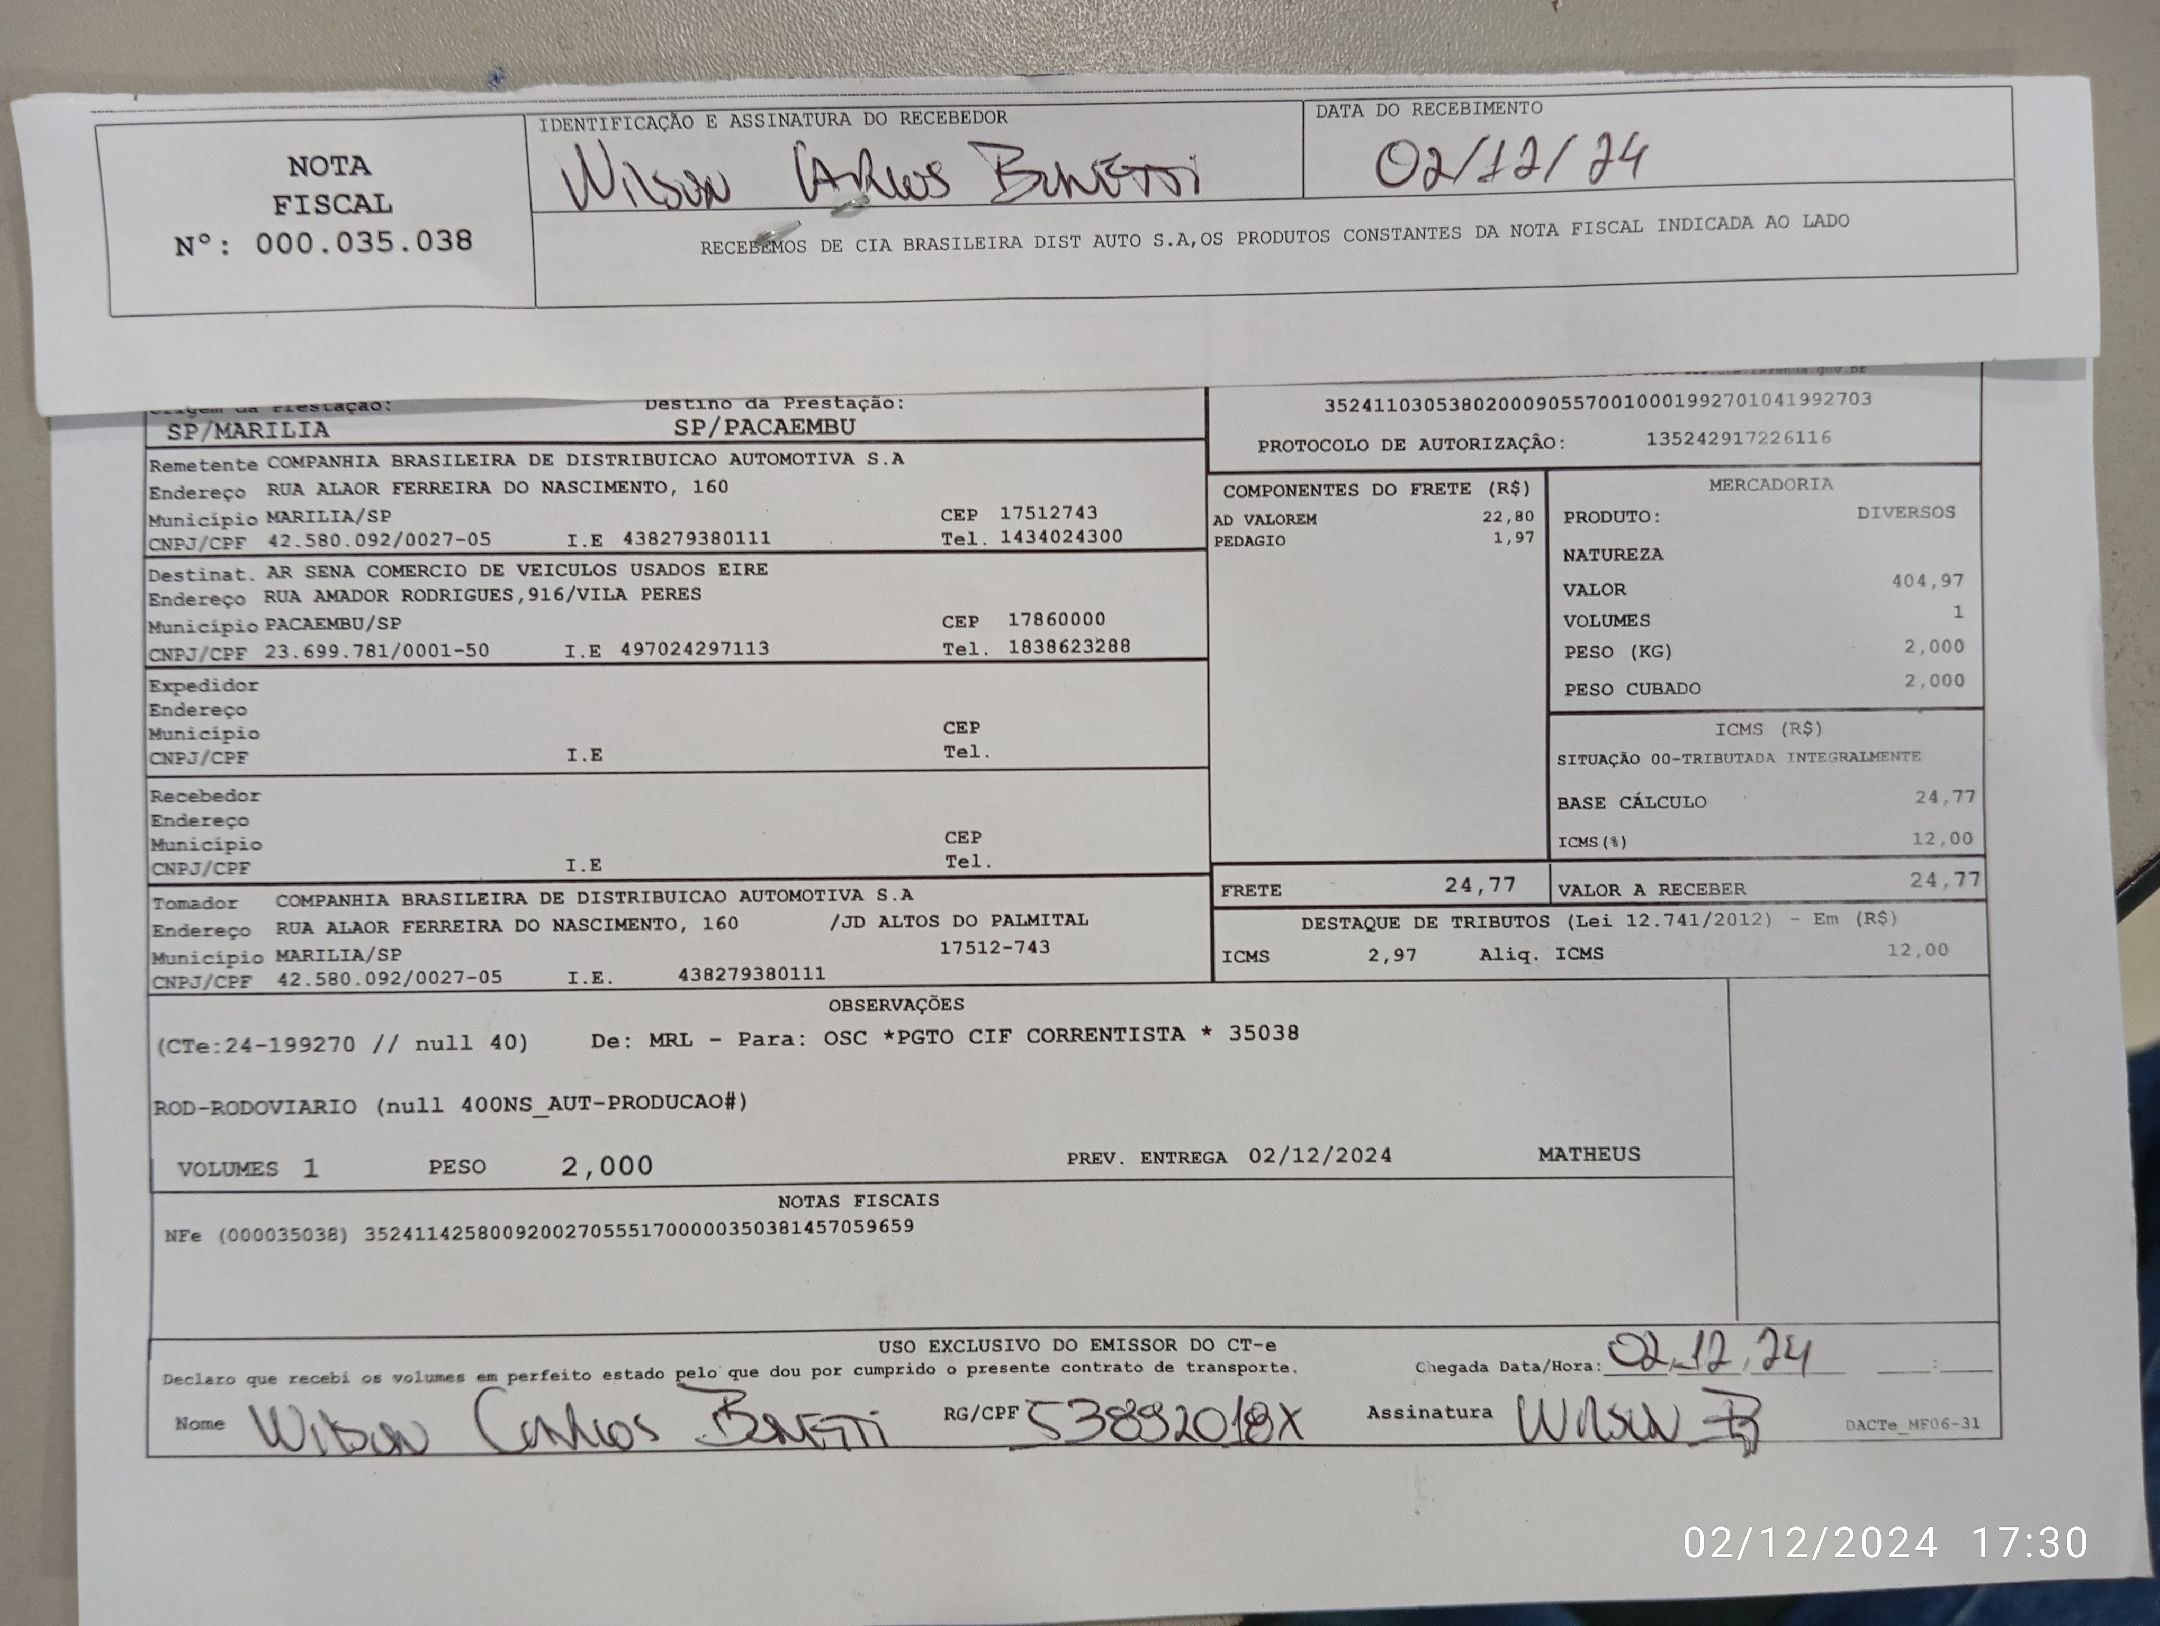 NOTA
FISCAL
Nº: 000.035.038
IDENTIFICAÇÃO E ASSINATURA DO RECEBEDOR
Wilson Carlos Bonetti
DATA DO RECEBIMENTO
02/12/24
RECEBEMOS DE CIA BRASILEIRA DIST AUTO S.A,OS PRODUTOS CONSTANTES DA NOTA FISCAL INDICADA AO LADO
Origem da Prestação: Destino da Prestação:
SP/MARILIA SP/PACAEMBU
35241103053802000905570010001992701041992703
PROTOCOLO DE AUTORIZAÇÃO: 135242917226116
Remetente COMPANHIA BRASILEIRA DE DISTRIBUICAO AUTOMOTIVA S.A
Endereço RUA ALAOR FERREIRA DO NASCIMENTO, 160
Município MARILIA/SP CEP 17512743
CNPJ/CPF 42.580.092/0027-05 I.E 438279380111 Tel. 1434024300
Destinat. AR SENA COMERCIO DE VEICULOS USADOS EIRE
Endereço RUA AMADOR RODRIGUES,916/VILA PERES
Município PACAEMBU/SP CEP 17860000
CNPJ/CPF 23.699.781/0001-50 I.E 497024297113 Tel. 1838623288
Expedidor
Endereço
Município CEP
CNPJ/CPF I.E Tel.
Recebedor
Endereço
Município CEP
CNPJ/CPF I.E Tel.
Tomador COMPANHIA BRASILEIRA DE DISTRIBUICAO AUTOMOTIVA S.A
Endereço RUA ALAOR FERREIRA DO NASCIMENTO, 160 /JD ALTOS DO PALMITAL
Município MARILIA/SP 17512-743
CNPJ/CPF 42.580.092/0027-05 I.E. 438279380111
COMPONENTES DO FRETE (R$)
AD VALOREM 22,80
PEDAGIO 1,97
MERCADORIA
PRODUTO: DIVERSOS
NATUREZA
VALOR 404,97
VOLUMES 1
PESO (KG) 2,000
PESO CUBADO 2,000
ICMS (R$)
SITUAÇÃO 00-TRIBUTADA INTEGRALMENTE
BASE CÁLCULO 24,77
ICMS(%) 12,00
FRETE 24,77 VALOR A RECEBER 24,77
DESTAQUE DE TRIBUTOS (Lei 12.741/2012) - Em (R$)
ICMS 2,97 Aliq. ICMS 12,00
OBSERVAÇÕES
(CTe:24-199270 // null 40) De: MRL - Para: OSC *PGTO CIF CORRENTISTA * 35038
ROD-RODOVIARIO (null 400NS_AUT-PRODUCAO#)
VOLUMES 1 PESO 2,000 PREV. ENTREGA 02/12/2024 MATHEUS
NOTAS FISCAIS
NFe (000035038) 35241142580092002705551700000350381457059659
USO EXCLUSIVO DO EMISSOR DO CT-e
Declaro que recebi os volumes em perfeito estado pelo que dou por cumprido o presente contrato de transporte. Chegada Data/Hora: 02.12.24 :
Nome Wilson Carlos Bonetti RG/CPF 53892018X Assinatura Wilson B DACTe_MF06-31
02/12/2024 17:30